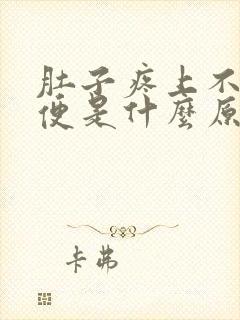 肚子疼上不
便是什麼原
卡弗